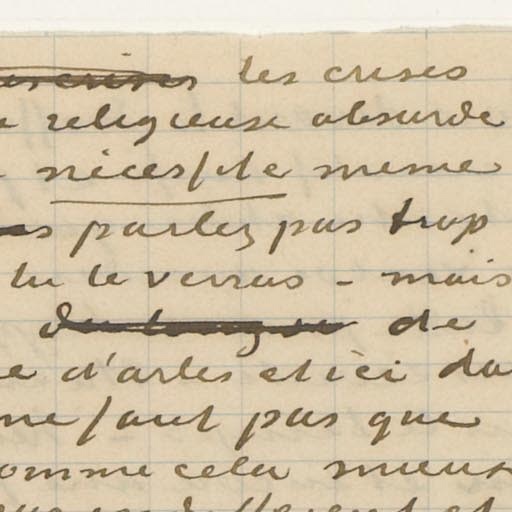 les crises
religieuse absurde
nécessité même
parlez pas trop
tu le verras – mais
de
d'arles et ici da
me faut pas que
comme cela mieux